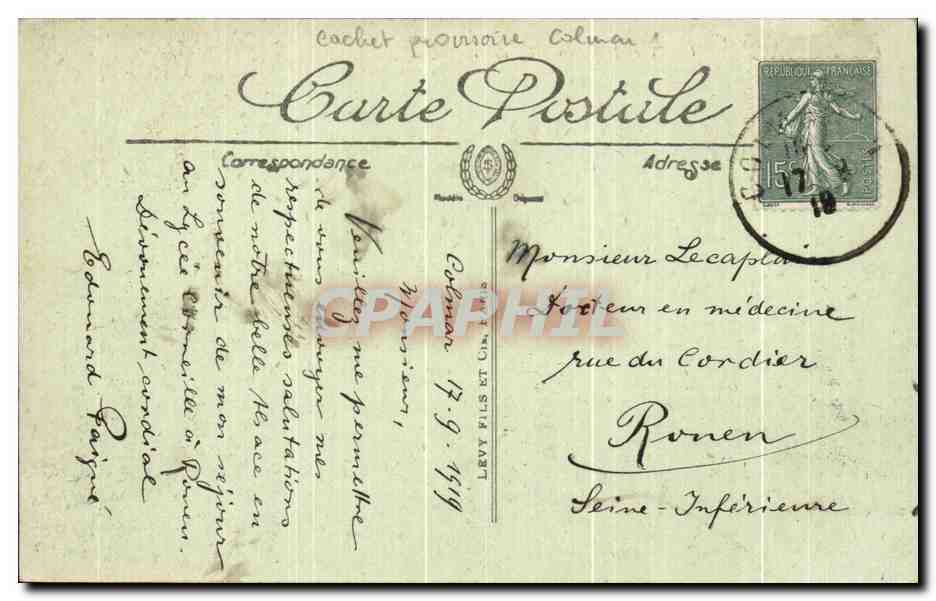 cachet provisoire Colmar !
Carte Postale
Correspondance
Adresse
RÉPUBLIQUE FRANÇAISE
15c
POSTES
COL
17
19
Modèle Déposé
Colmar 17.9.1919
Monsieur,
Veuillez me permettre
de vous envoyer mes
respectueuses salutations
de notre belle Alsace en
souvenir de mon séjour
au Lycée Corneille à Rouen.
Dévouement cordial
Edouard
LEVY FILS ET CIE, PARIS
Monsieur Lecaplain
Docteur en médecine
rue du Cordier
Rouen
Seine-Inférieure
CPAPHIL